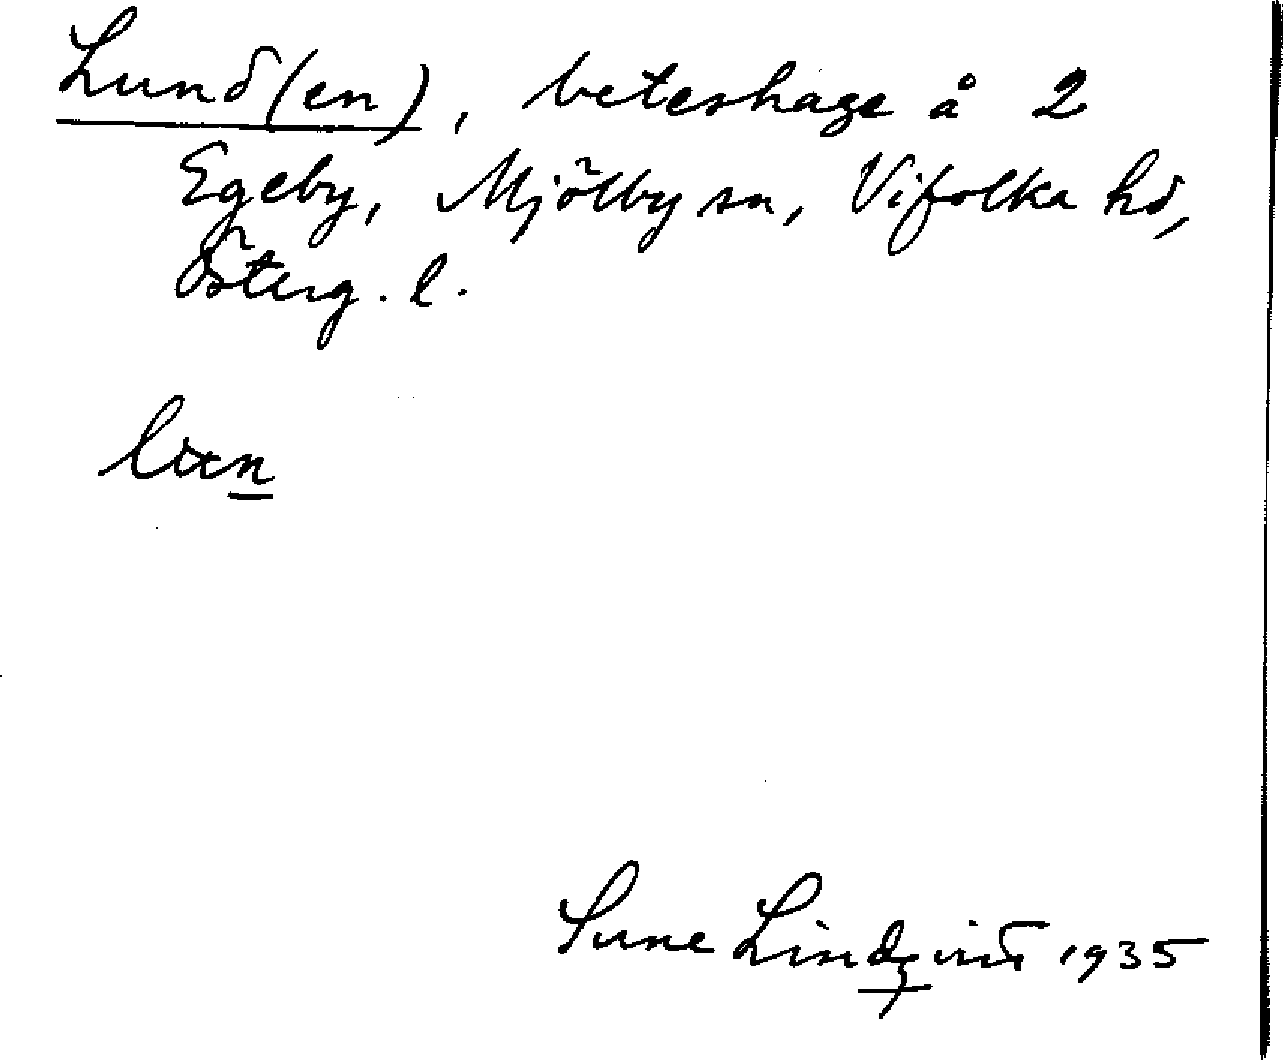 Lund(en), beteshage å 2
Egeby, Mjölby sn, Vifolka hd,
Österg. l.
Sune Lindqvist 1935